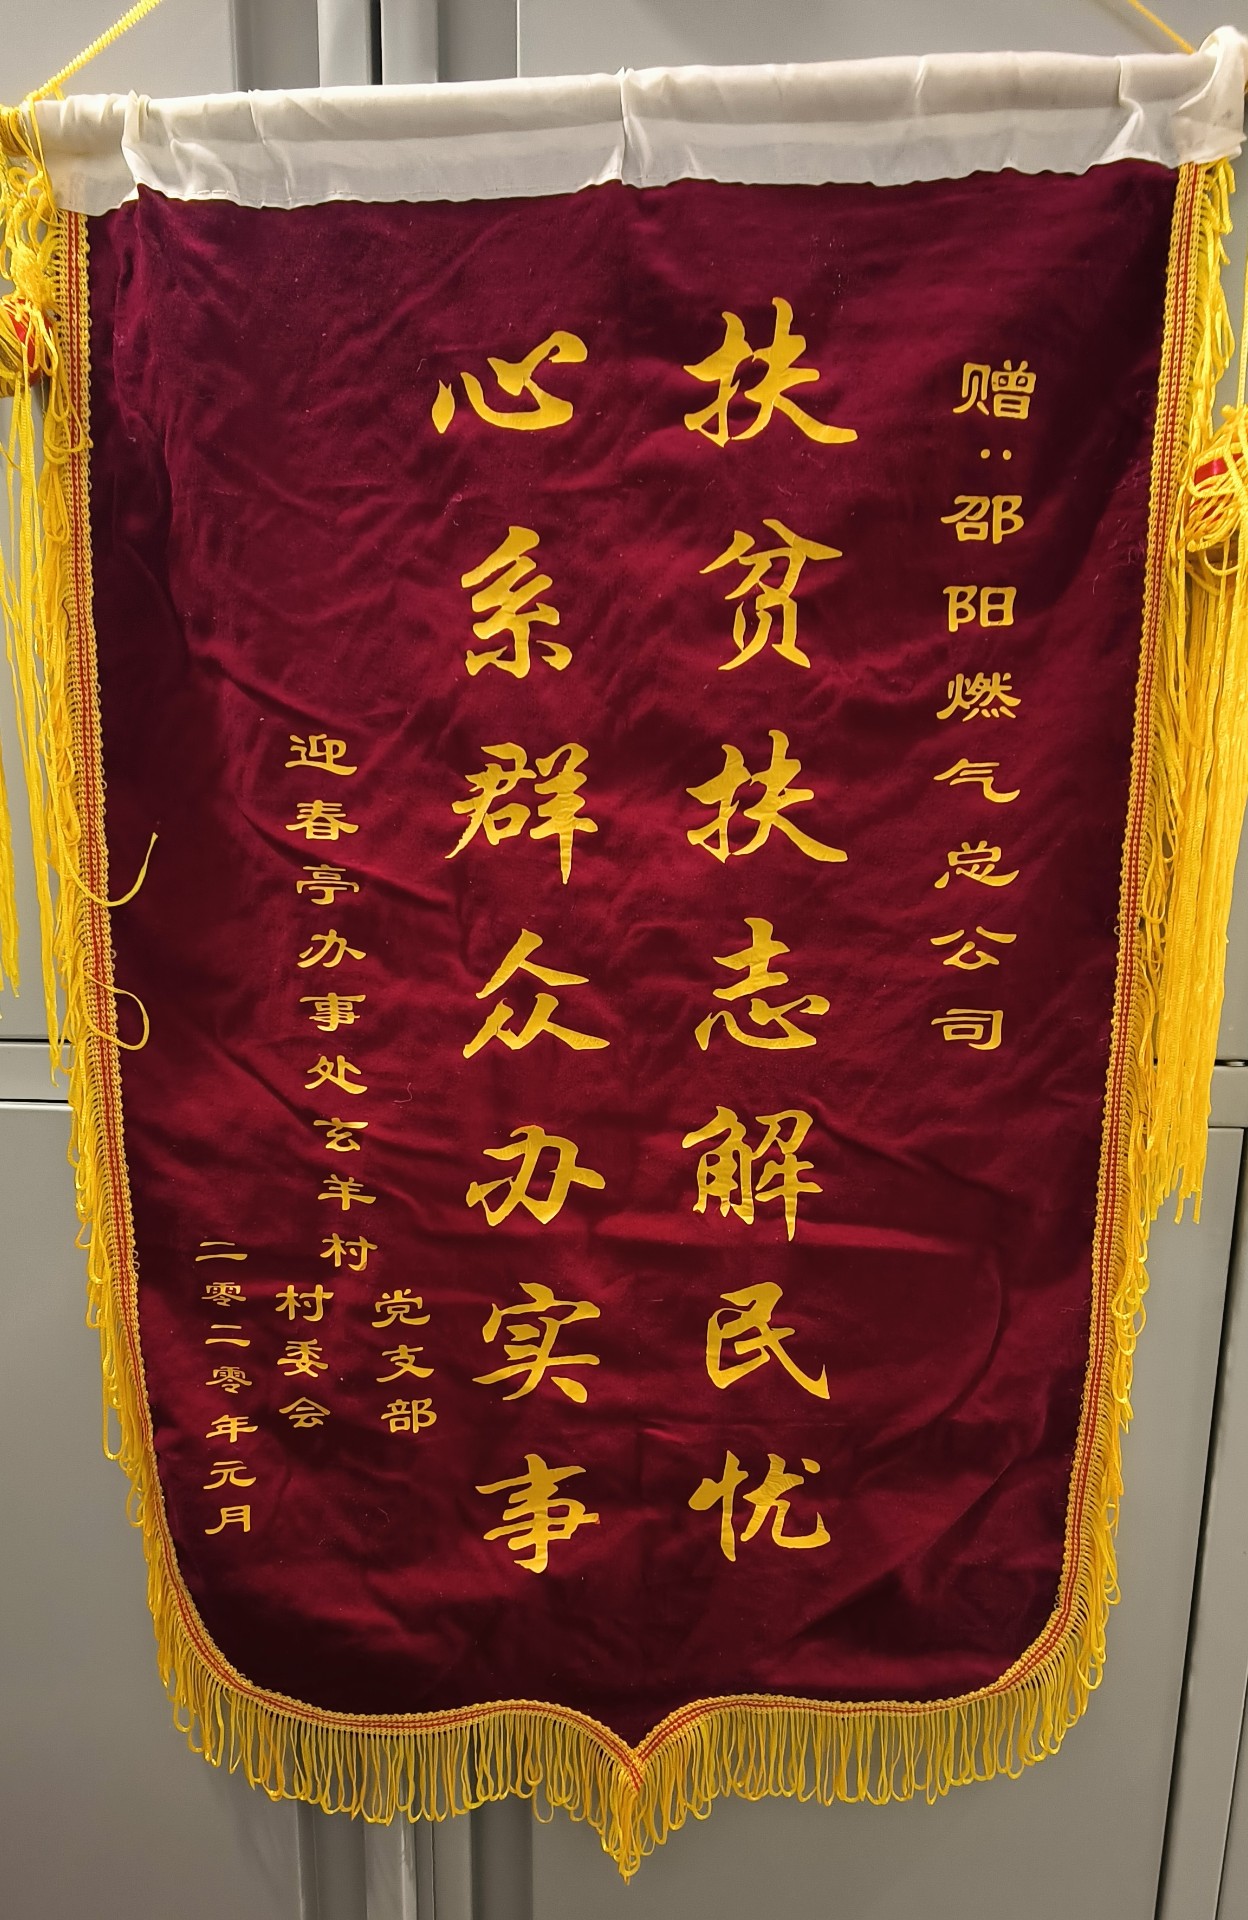 赠：邵阳燃气总公司
扶贫扶志解民忧
心系群众办实事
迎春亭办事处玄羊村
党支部
村委会
二零二零年元月